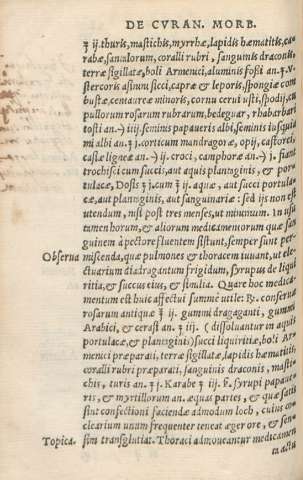 DE CVRAN. MORB.
ʒ ij. thuris, mastichis, myrrhæ, lapidis hæmatitis, ca-
rabæ, santalorum, coralli rubri, sanguinis draconis,
terræ sigillatæ, boli Armenici, aluminis fossi an. ʒ. v.
stercoris asinini sicci, capræ & leporis, spongiæ com
bustæ, centaureæ minoris, cornu cerui vsti, spodij, cu
pullorum rosarum rubrarum, bedeguar, rhabarbari
tosti an. iiij. seminis papaueris albi, seminis iusquia
mi albi an ʒ j. corticum mandragoræ, opij, castorei,
castæ ligneæ an. ij. croci, camphoræ an. j. fiant
trochisci cum succis, aut aquis plantaginis, & por-
tulacæ, Dosis ʒ j. cum ʒ ij. aquæ, aut succi portula
cæ, aut plantaginis, aut sanguinariæ: sed ijs non est
vtendum, nisi post tres menses, ut minimum. In usu
tamen horum, & aliorum medicamentorum quæ san
guinem à pectore fluentem sistunt, semper sunt per-
Obserua miscenda, quæ pulmones & thoracem iuuant, ut ele-
ctuarium diadragantum frigidum, syrupus de liqui
ritia, & succus eius, & similia. Quare hoc medica-
mentum est huic affectui summè utile: ℞. conseruæ
rosarum antiquæ ℥ ij. gummi dragaganti, gummi
Arabici, & cerast an. ʒ iij. (dissoluantur in aquis
portulacæ, & plantaginis) succi liquiritiæ, boli Ar-
menici præparati, terræ sigillatæ, lapidis hæmatitis
coralli rubri præparati, sanguinis draconis, masti-
chis, turis an. ʒ j. Karabe ʒ iij ß. syrupi papaue-
ris, & myrtillorum an. æquas partes, & quæ satis
sint confectioni faciendæ ad modum loch, cuius co-
clearium unum frequenter teneat æger ore, & sen-
Topica. sim transglutiat. Thoraci admoueantur medicamen
ta actu